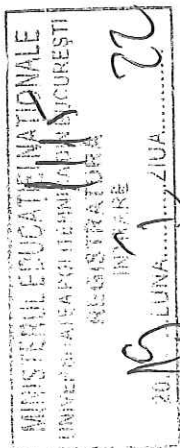 MINISTERUL EDUCAȚIEI NAȚIONALE
UNIVERSITATEA POLITEHNICA DIN BUCUREȘTI
REGISTRATURA
INTRARE
20 19 LUNA 1 ZIUA 22